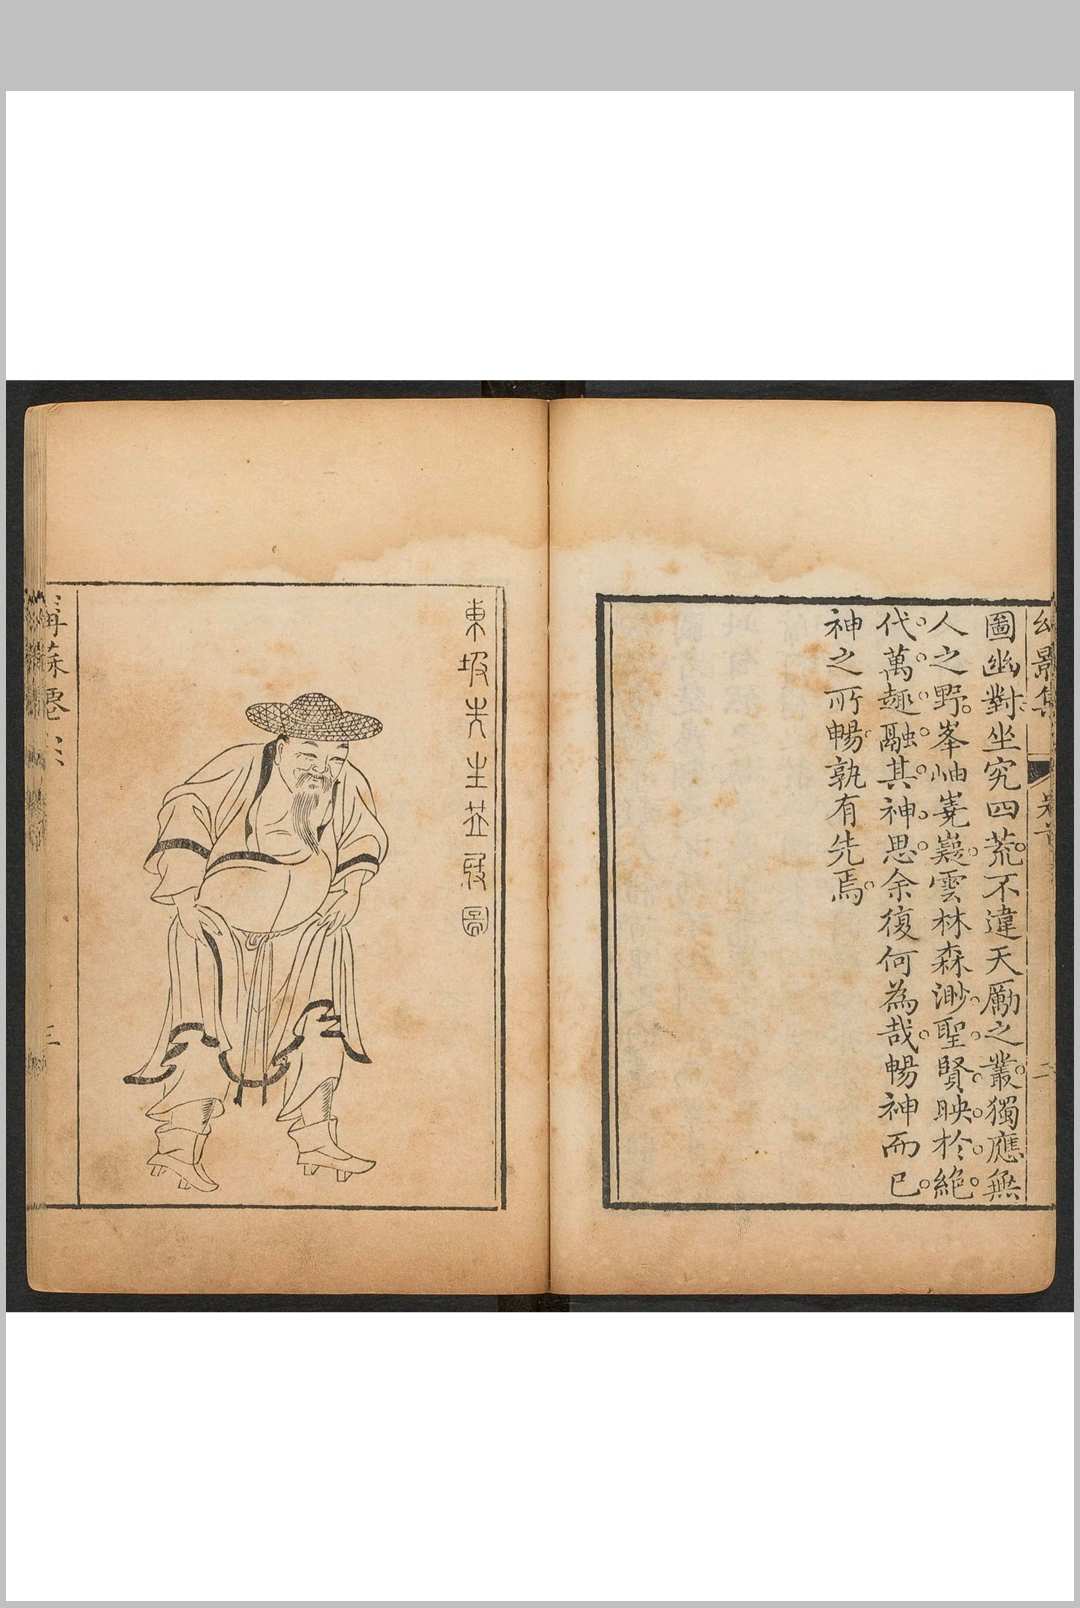 圖幽對坐究四荒不違天勵之藂獨應無
人之野峯岫嶤嶷雲林森渺聖賢暎於絕
代萬趣融其神思余復何為哉暢神而已
神之所暢孰有先焉
二
東坡先生笠屐圖
三